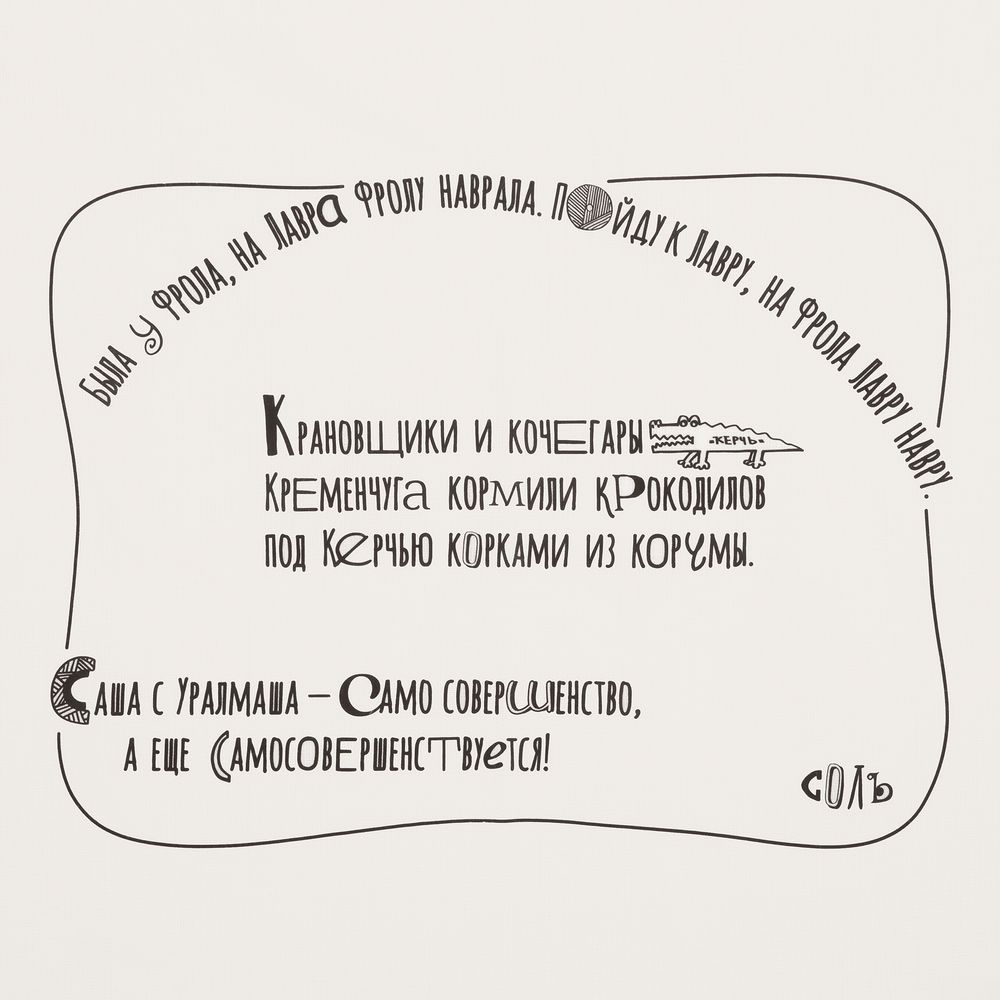 Была у Фрола, на Лавра Фролу наврала. Пойду к Лавру, на Фрола Лавру навру.
Крановщики и кочегары
-КЕРЧЬ-
Кременчуга кормили крокодилов
под Керчью корками из корчмы.
Саша с Уралмаша – Само совершенство,
а еще Самосовершенствуется!
СОЛЬ